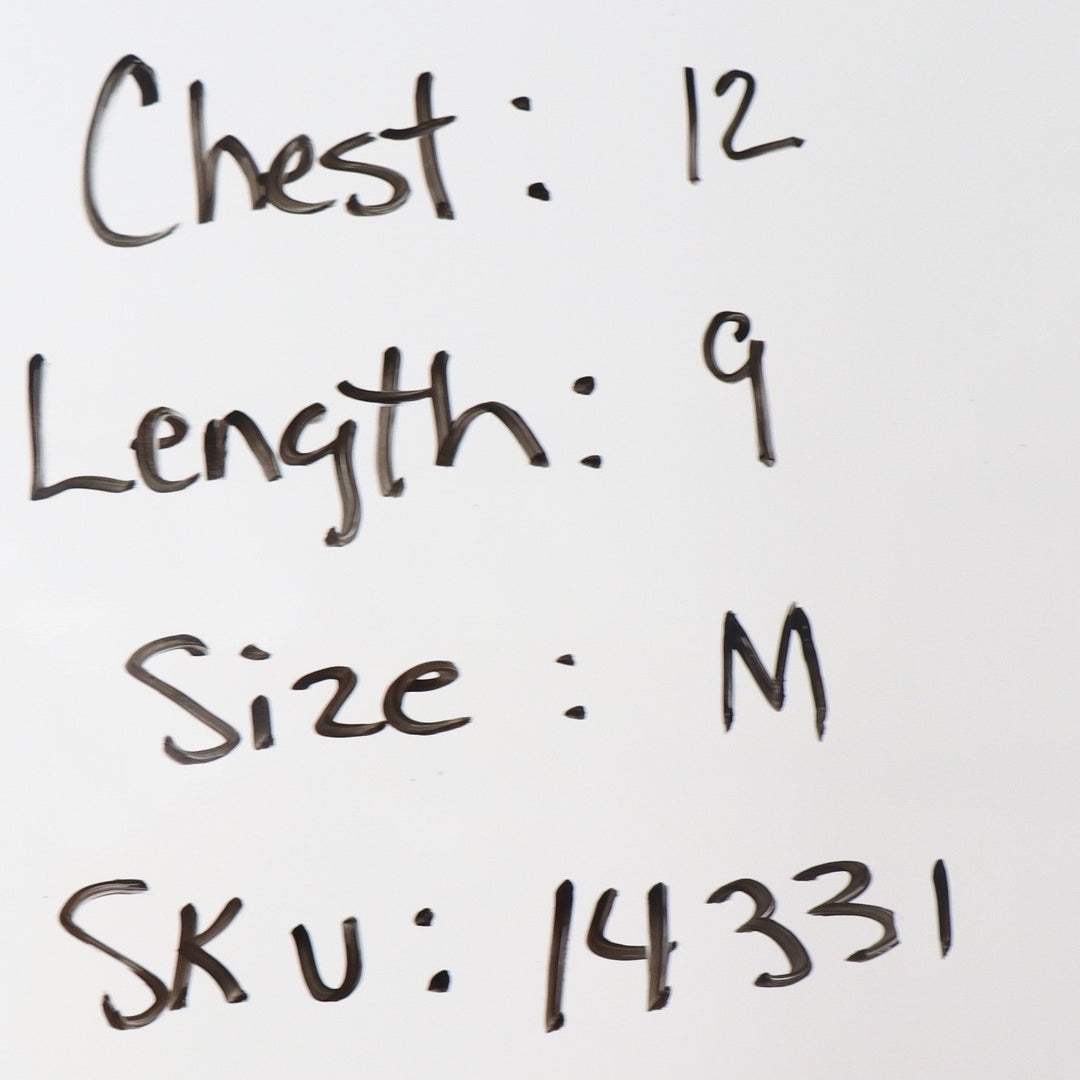 Chest: 12
Length: 9
Size: M
SKU: 14331